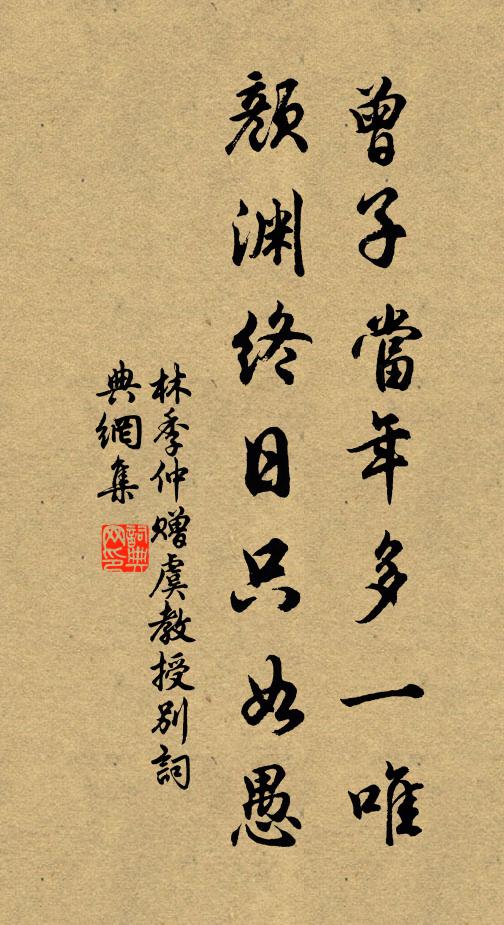 曾子當年多一唯
顏渊終日只如愚
林季仲赠虞教授别詞
典網集
詞典网印